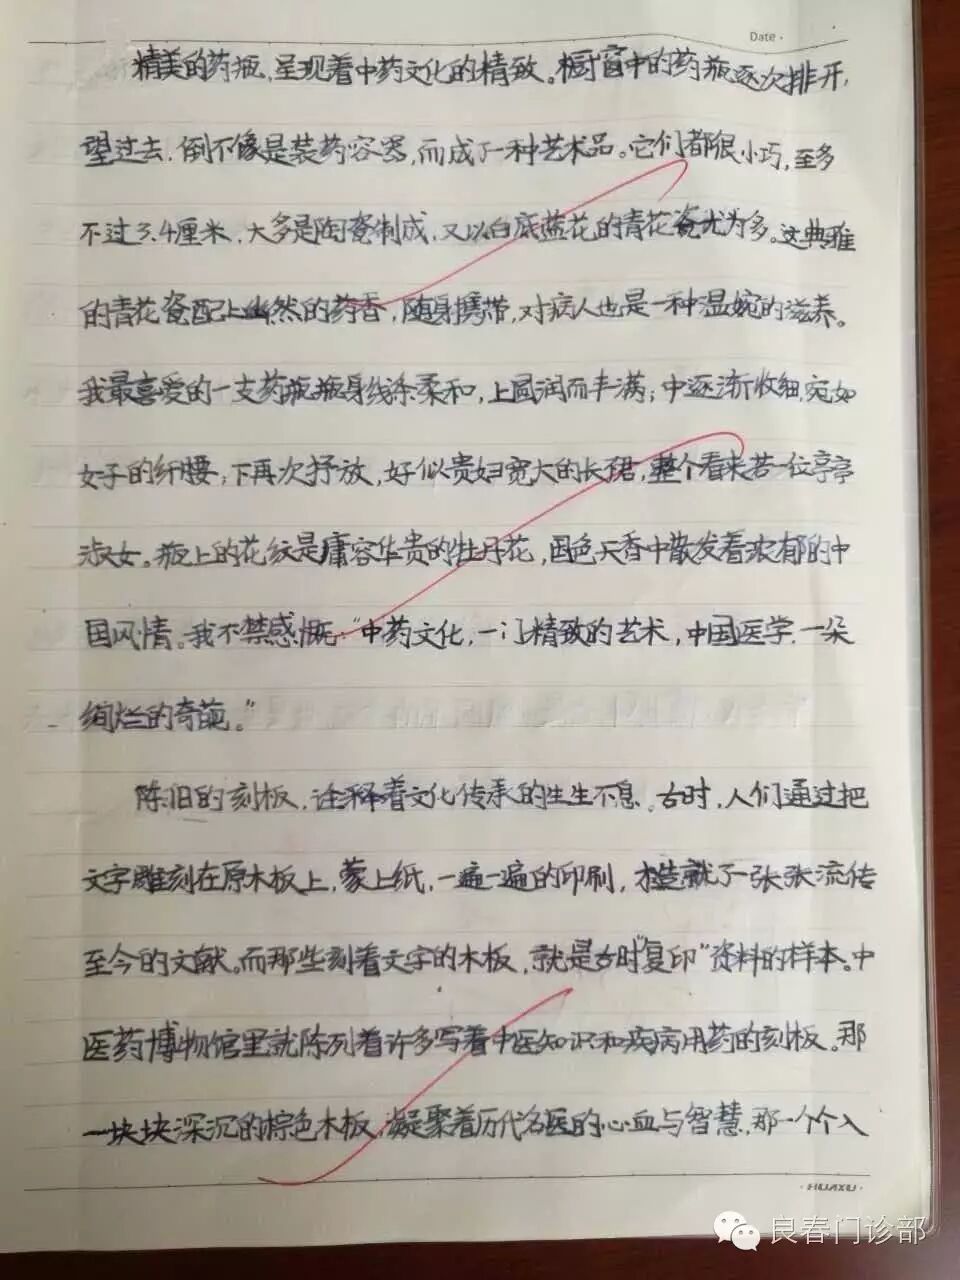 Date ·
精美的药瓶,呈现着中药文化的精致。橱窗中的药瓶逐次排开,
望过去,倒不像是装药容器,而成了一种艺术品。它们都很小巧,至多
不过3.4厘米,大多是陶瓷制成,又以白底蓝花的青花瓷尤为多。这典雅
的青花瓷配上幽然的药香,随身携带,对病人也是一种温婉的滋养。
我最喜爱的一支药瓶瓶身线条柔和,上圆润而丰满;中逐渐收细,宛如
女子的纤腰;下再次抒放,好似贵妇宽大的长裙,整个看来若一位亭亭
淑女。瓶上的花纹是庸容华贵的牡丹花,国色天香中散发着浓郁的中
国风情。我不禁感慨:“中药文化,一门精致的艺术,中国医学,一朵
绚烂的奇葩。”
陈旧的刻板,诠释着文化传承的生生不息。古时,人们通过把
文字雕刻在原木板上,蒙上纸,一遍一遍的印刷,才造就了一张张流传
至今的文献。而那些刻着文字的木板,就是古时“复印”资料的样本。中
医药博物馆里就陈列着许多写着中医知识和疾病用药的刻板。那
一块块深沉的棕色木板,凝聚着历代名医的心血与智慧,那一个个入
· HUAXU ·
良春门诊部